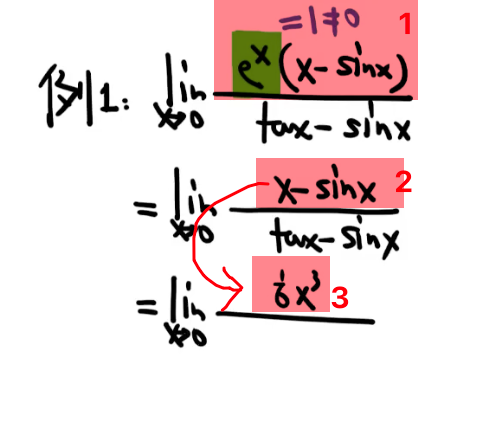 =1≠0 1
例1: lim x→0 e^x(x-sinx) / tax-sinx
= lim x→0 x-sinx / tax-sinx 2
= lim x→0 1/6 x^3 3